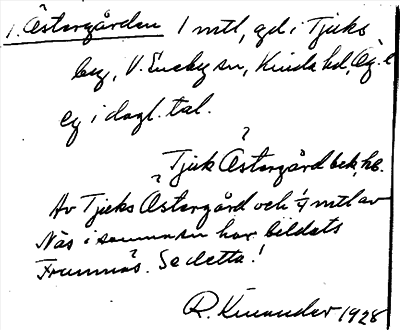 1. Östergården 1 mtl, gd i Tjuks
by, V. Eneby sn, Kinda hd, Ög. l
eg i dagl. tal.
?
Tjuk Östergård bek, hb.
?
Av Tjuks Östergård och 1/4 mtl av
Näs i samma sn har bildats
Framnäs. Se detta!
R. Kinander 1928